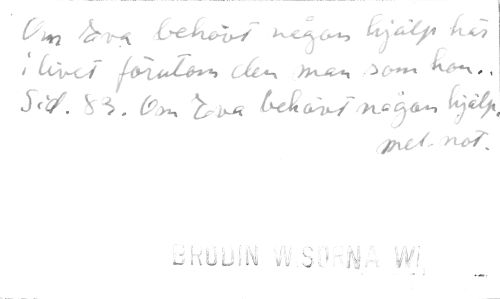 Om Eva behövt någon hjälp här
i livet förutom den man som hon..
Sid. 83. Om Eva behövt någon hjälp.
mel. not.
BRODIN W SORNA WI